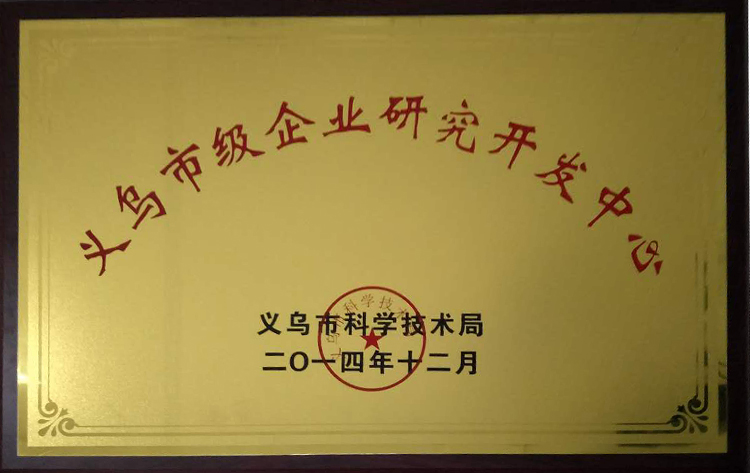 义乌市级企业研究开发中心
义乌市科学技术局
二〇一四年十二月